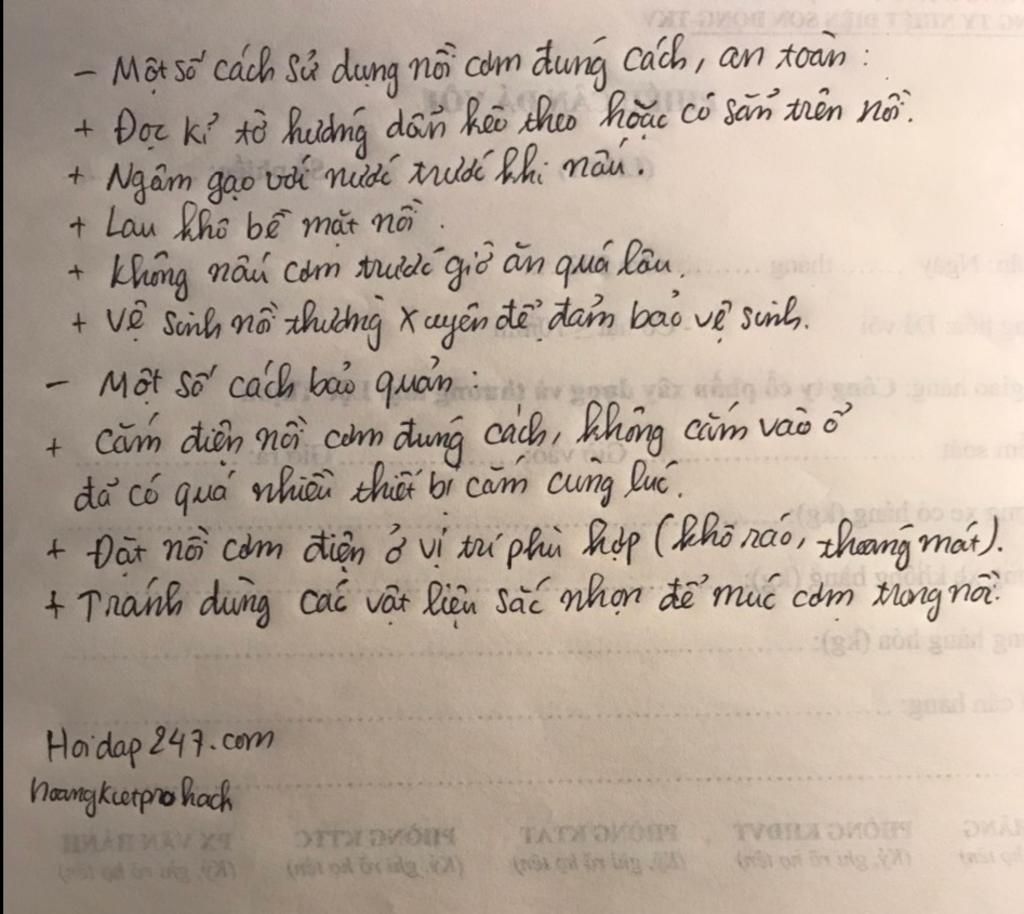 - Một số cách sử dụng nồi cơm đúng cách, an toàn :
+ Đọc kỉ tờ hướng dẩn kèo theo hoặc có sẳn trên nồi.
+ Ngâm gạo với nước trước khi nấu.
+ Lau khô bề mặt nồi.
+ Không nấu cơm trước giờ ăn quá lâu.
+ Vệ sinh nồi thường xuyên để đảm bảo vệ sinh.
- Một số cách bảo quản :
+ Cắm điện nồi cơm đúng cách, không cắm vào ổ
đã có quá nhiều thiết bị cắm cùng lúc.
+ Đặt nồi cơm điện ở vị trí phù hợp (khô ráo, thoáng mát).
+ Tránh dùng các vật liệu sắc nhọn để múc cơm trong nồi.
Hoidap247.com
hoangkietprohach